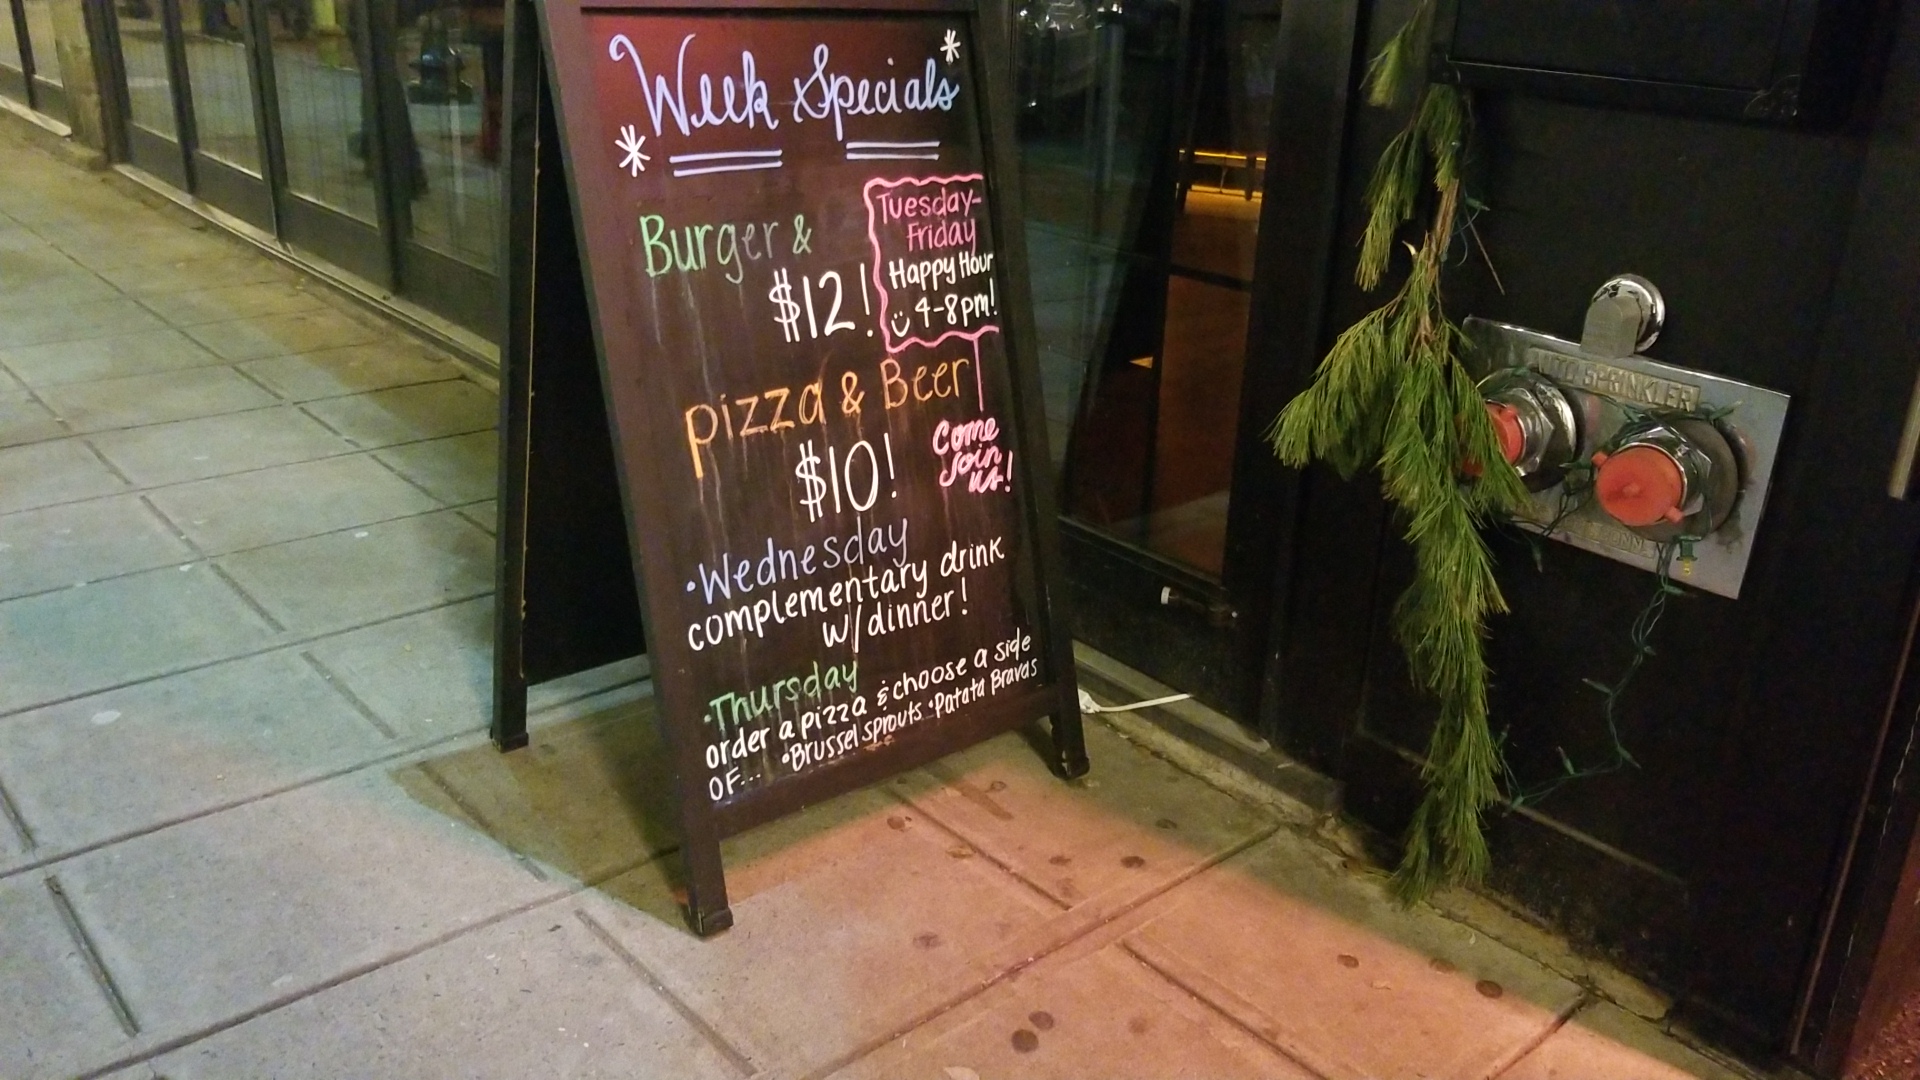 Week Specials
Burger &
$12!
Tuesday-
Friday
Happy Hour
4-8pm!
pizza & Beer
$10!
Come
Join
us!
•Wednesday
complementary drink
w/dinner!
•Thursday
order a pizza & choose a side
OF... •Brussel sprouts •Patata Bravas
AUTO SPRINKLER